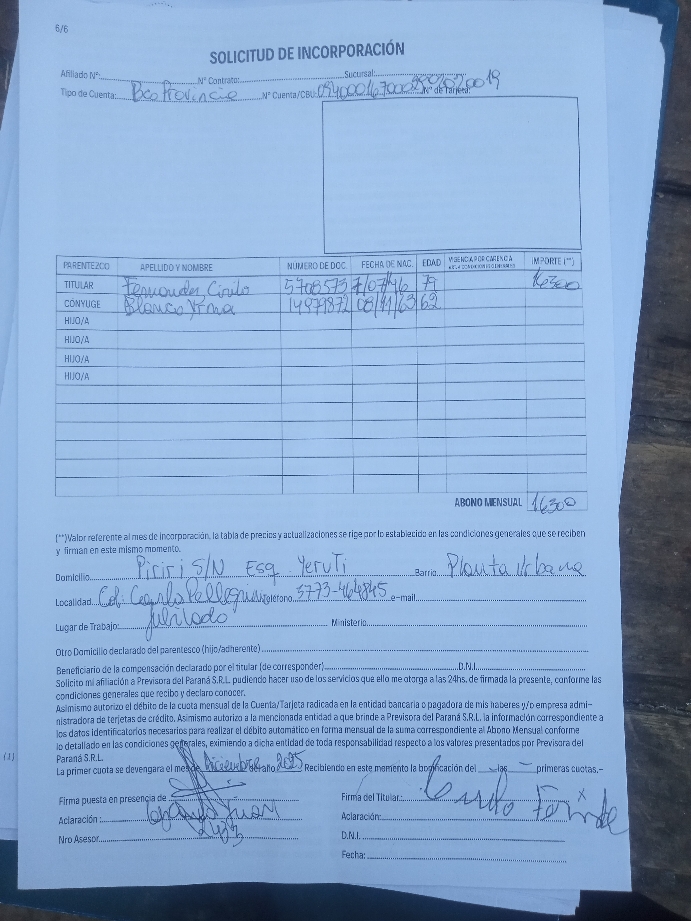 6/6
SOLICITUD DE INCORPORACIÓN
Afiliado Nº: Nº Contrato: Sucursal:
Tipo de Cuenta: Bco Provincia Nº Cuenta/CBU: Nº de Tarjeta:
PARENTEZCO APELLIDO Y NOMBRE NUMERO DE DOC. FECHA DE NAC. EDAD VIGENCIA POR CARENCIA IMPORTE (**)
TITULAR Fernandez Cirilo 5708573 7/07/46 16300
CÓNYUGE Blanco Irma 14979872 08/11/63 62
HIJO/A
HIJO/A
HIJO/A
HIJO/A
ABONO MENSUAL 16300
(**)Valor referente al mes de incorporación, la tabla de precios y actualizaciones se rige por lo establecido en las condiciones generales que se reciben
y firman en este mismo momento.
Domicilio Piriri S/N Esq Yeruti Barrio Planta Urbana
Localidad Col. Carlos Pellegrini Teléfono 3773-464845 e-mail
Lugar de Trabajo: Jubilado Ministerio
Otro Domicilio declarado del parentesco (hijo/adherente)
Beneficiario de la compensación declarado por el titular (de corresponder) D.N.I.
Solicito mi afiliación a Previsora del Paraná S.R.L. pudiendo hacer uso de los servicios que ello me otorga a las 24hs. de firmada la presente, conforme las
condiciones generales que recibo y declaro conocer.
Asimismo autorizo el débito de la cuota mensual de la Cuenta/Tarjeta radicada en la entidad bancaria o pagadora de mis haberes y/o empresa admi-
nistradora de terjetas de crédito. Asimismo autorizo a la mencionada entidad a que brinde a Previsora del Paraná S.R.L. la información correspondiente a
los datos identificatorios necesarios para realizar el débito automático en forma mensual de la suma correspondiente al Abono Mensual conforme
lo detallado en las condiciones generales, eximiendo a dicha entidad de toda responsabilidad respecto a los valores presentados por Previsora del
Paraná S.R.L.
(1)
La primer cuota se devengara el mes de Diciembre del año 2025 Recibiendo en este momento la bonificación del las primeras cuotas.-
Firma puesta en presencia de Firma del Titular: x
Aclaración : Juan Aclaración:
Nro Asesor D.N.I.
Fecha: